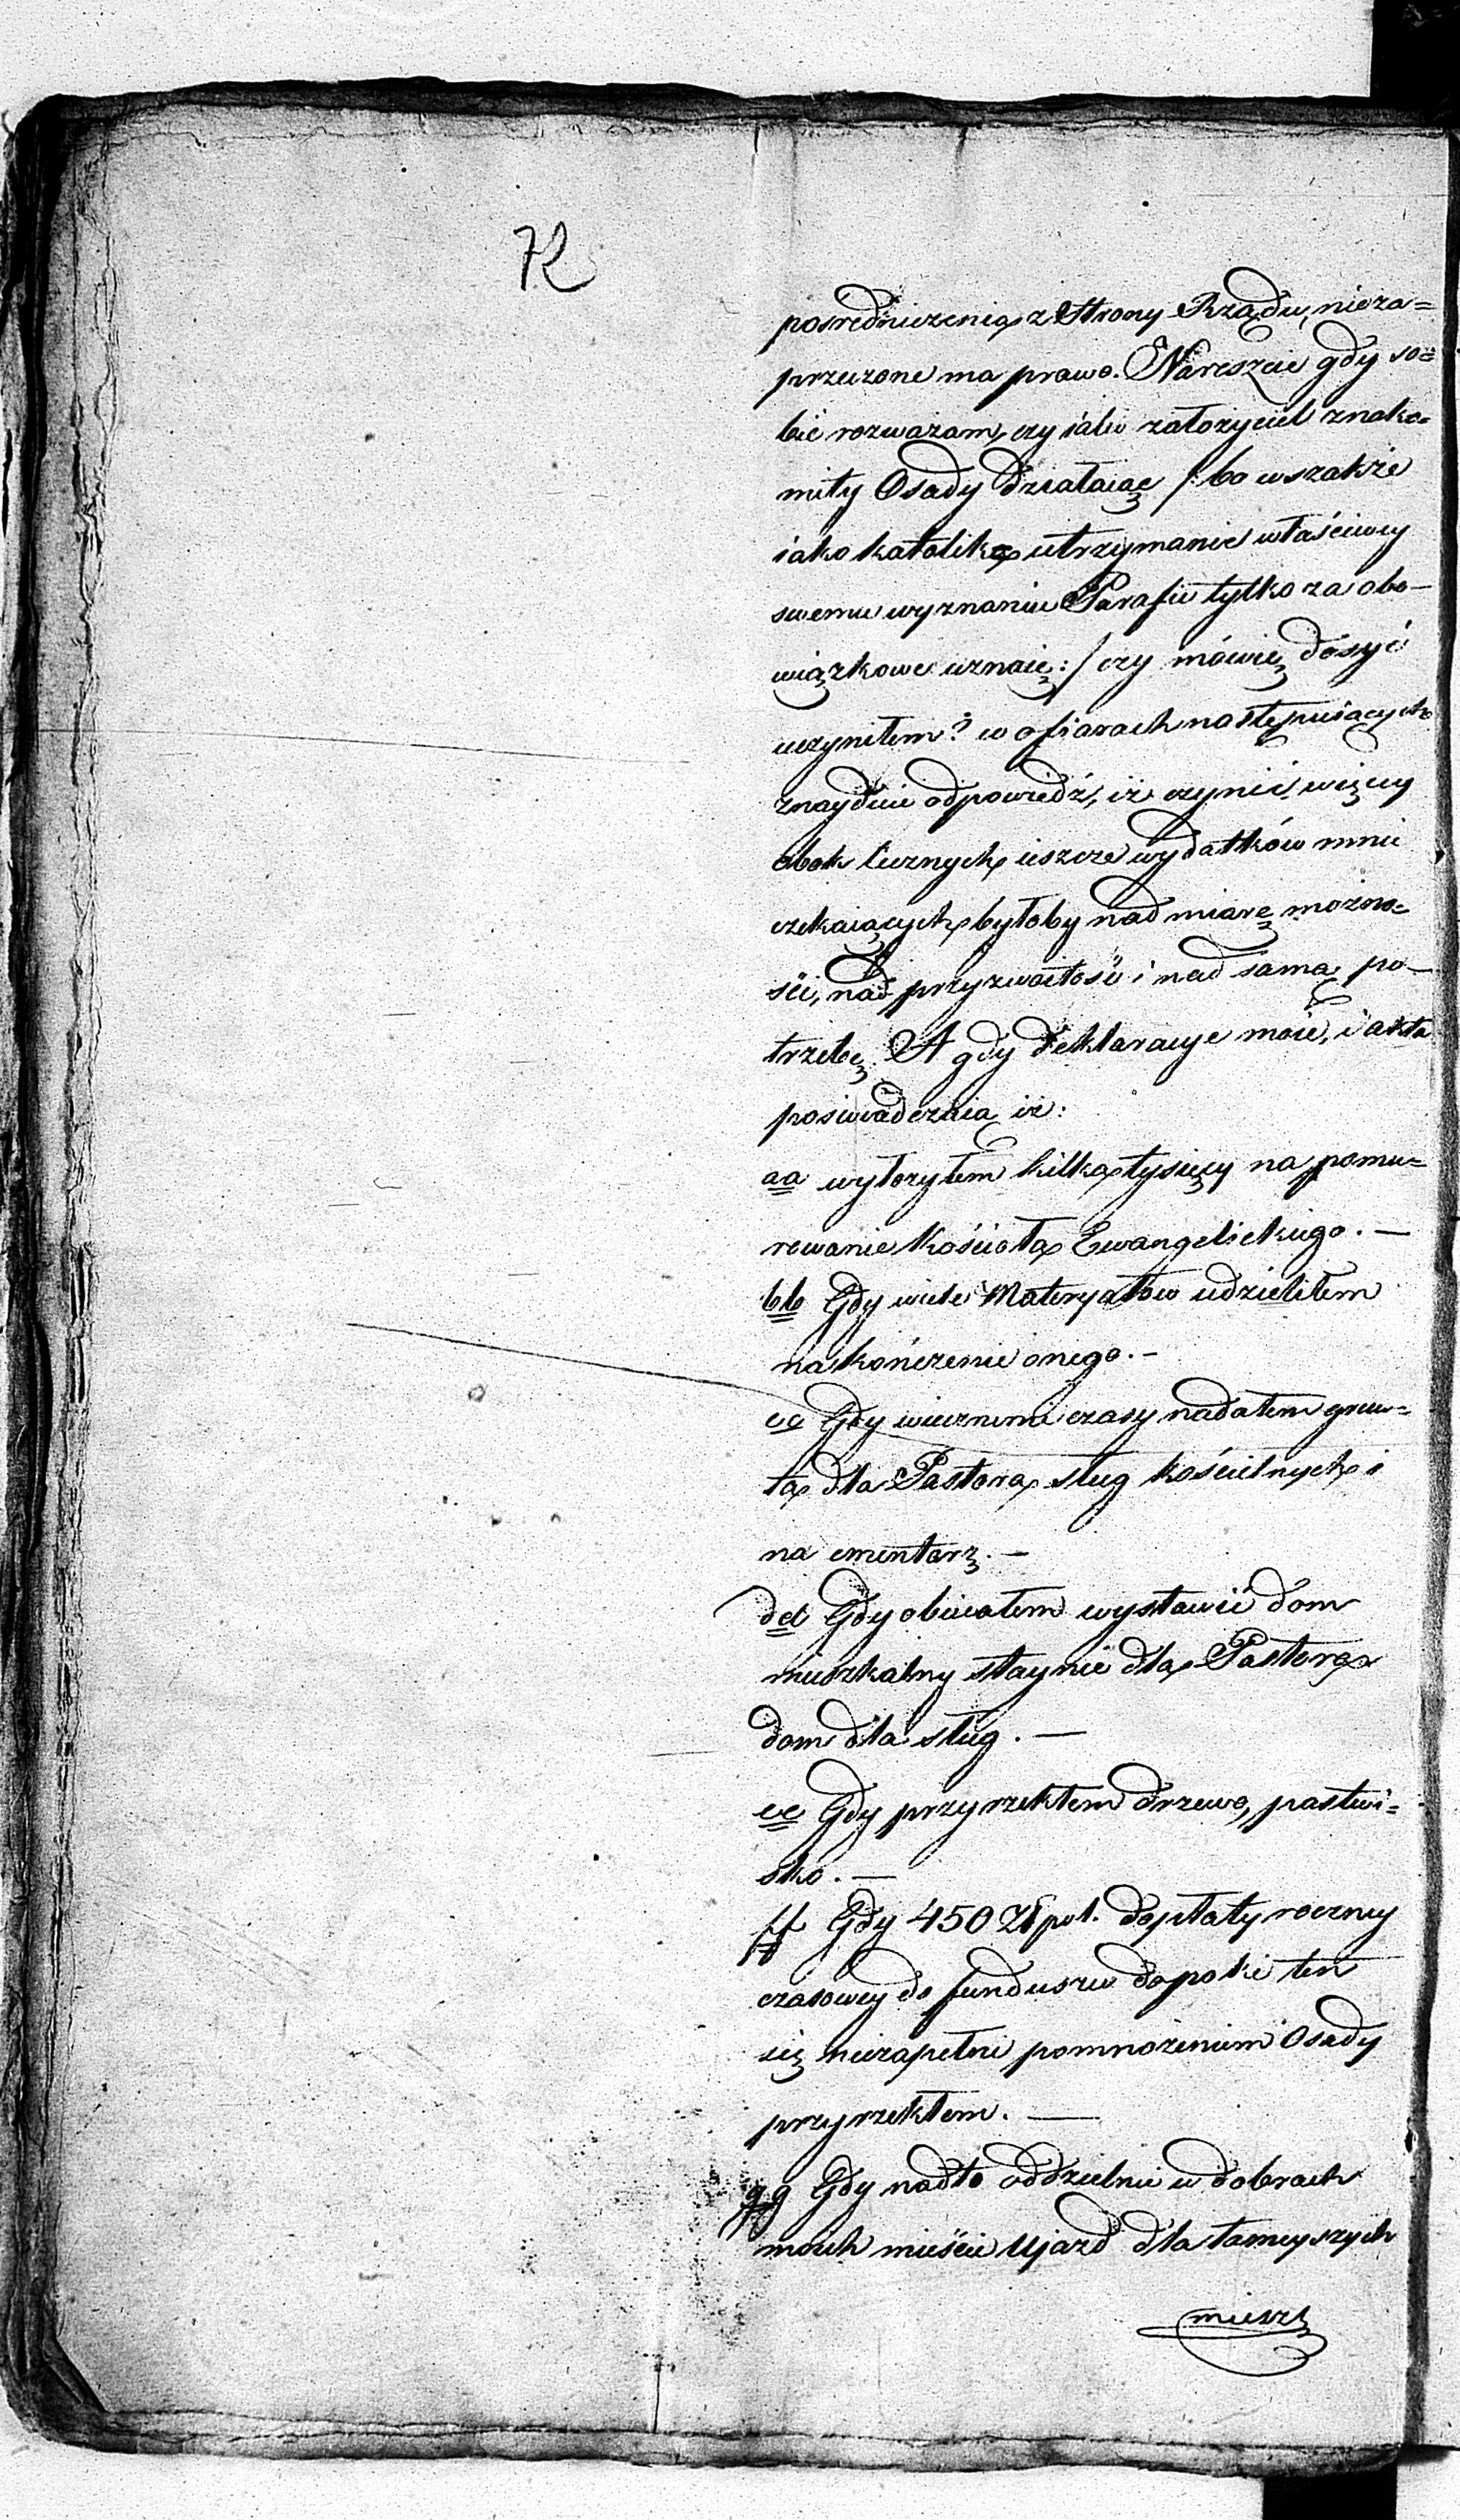 72
pośredniczenia z Strony Rządu, nieza=
przeczone ma prawo. Nareszcie gdy so=
bie rozważam, czy iako założyciel znako=
mity Osady działaiąc /: bo wszakże
iako katolika utrzymanie właściwey
swemu wyznaniu Parafii tylko za obo-
wiązkowe uznaię :/ czy mówię dosyć
uczyniłem? w ofiarach następuiących
znayduie odpowiedź, iż czynić więcey
obok licznych ieszcze wydatków mnie
czekaiących byłoby nad miarę możno=
ści, nad przyzwoitość i nad samą po-
trzebę. A gdy deklaracye moie, i akta
poświadczaią iż:
aa wyłożyłem kilka tysięcy na pomu=
rowanie Kościoła Ewangelickiego. —
bb Gdy wiele Materyałów udzieliłem
na kończenie onego. —
cc Gdy wiecznemi czasy nadałem grun=
ta dla Pastora sług kościelnych i
na cmentarz. —
dd Gdy obiecałem wystawić dom
mieszkalny staynie dla Pastora
dom dla sług. —
ee Gdy przyrzekłem drzewo, pastwi=
sko. —
ff Gdy 450 Zł pol. dopłaty roczney
czasowey do funduszu dopóki ten
się niezapełni pomnożeniem Osady
przyrzekłem. —
gg Gdy nadto oddzielnie w dobrach
moich mieście Ujazd dla tameyszych
miesz